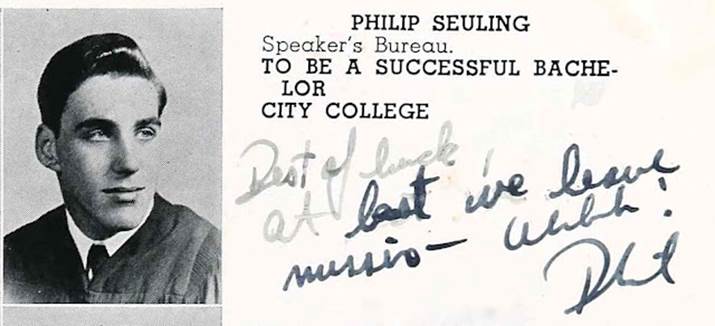 PHILIP SEULING
Speaker's Bureau.
TO BE A SUCCESSFUL BACHE-
LOR
CITY COLLEGE
Best of luck
at last we leave
Phil